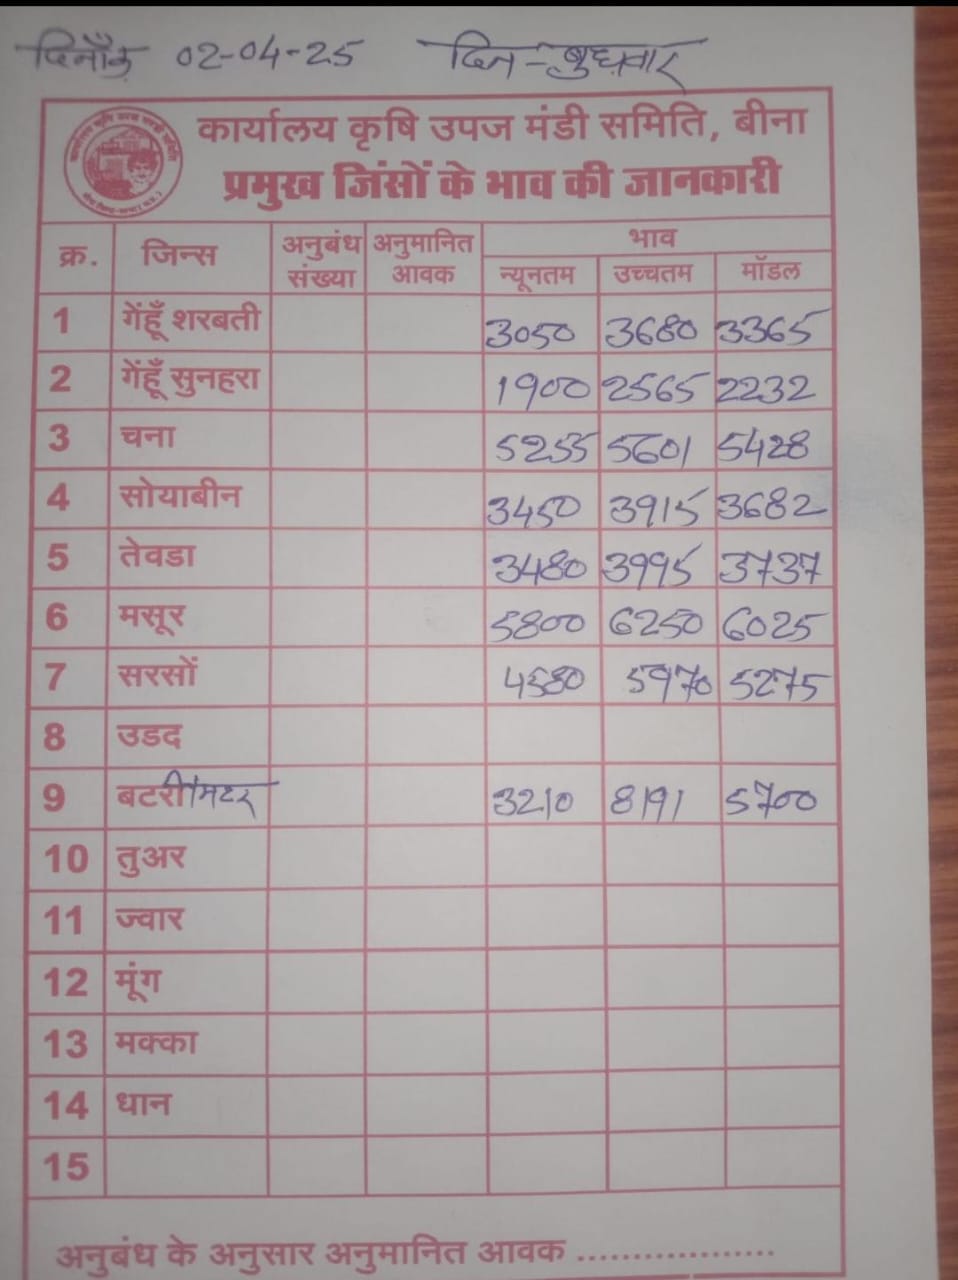 दिनाँक 02-04-25 दिन - बुधवार
कार्यालय कृषि उपज मंडी समिति, बीना
प्रमुख जिंसों के भाव की जानकारी
क्र. जिन्स अनुबंध संख्या अनुमानित आवक भाव
न्यूनतम उच्चतम मॉडल
1 गेंहूँ शरबती 3050 3680 3365
2 गेंहूँ सुनहरा 1900 2565 2232
3 चना 5255 5601 5428
4 सोयाबीन 3450 3915 3682
5 तेवडा 3480 3995 3737
6 मसूर 5800 6250 6025
7 सरसों 4580 5970 5275
8 उडद
9 बटरी/मटर 3210 8191 5700
10 तुअर
11 ज्वार
12 मूंग
13 मक्का
14 धान
15
अनुबंध के अनुसार अनुमानित आवक ..................